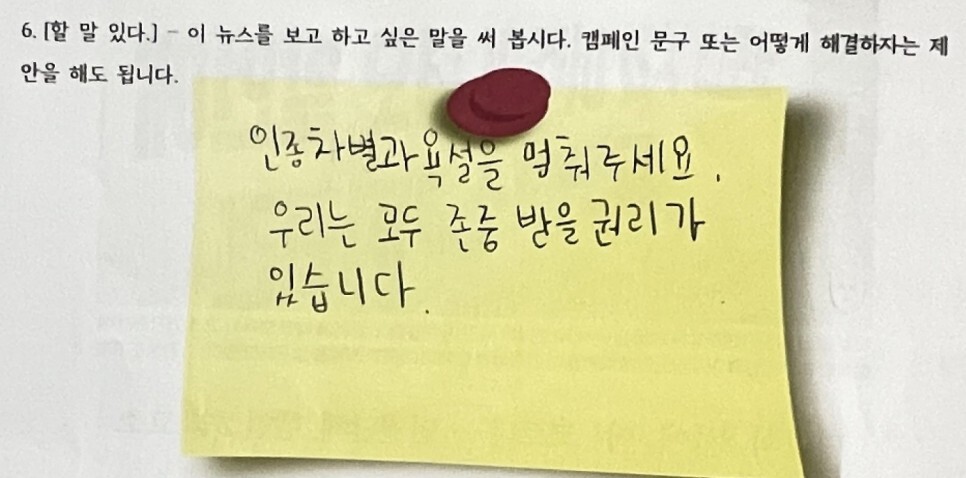 6. [할 말 있다.] - 이 뉴스를 보고 하고 싶은 말을 써 봅시다. 캠페인 문구 또는 어떻게 해결하자는 제
안을 해도 됩니다.
인종차별과 욕설을 멈춰주세요.
우리는 모두 존중 받을 권리가
있습니다.